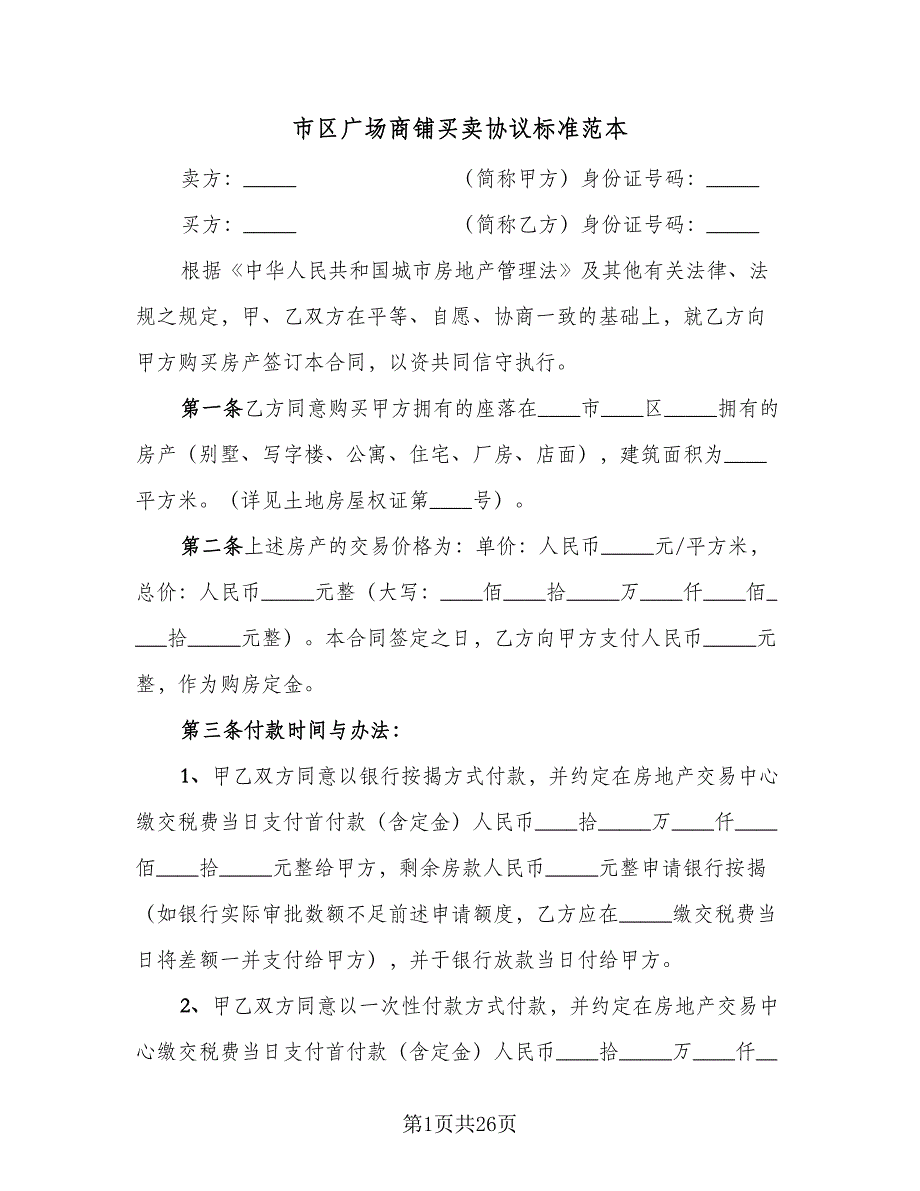 市区广场商铺买卖协议标准范本
卖方：_____ （简称甲方）身份证号码：_____
买方：_____ （简称乙方）身份证号码：_____
根据《中华人民共和国城市房地产管理法》及其他有关法律、法
规之规定，甲、乙双方在平等、自愿、协商一致的基础上，就乙方向
甲方购买房产签订本合同，以资共同信守执行。
第一条乙方同意购买甲方拥有的座落在____市____区_____拥有的
房产（别墅、写字楼、公寓、住宅、厂房、店面），建筑面积为____
平方米。（详见土地房屋权证第____号）。
第二条上述房产的交易价格为：单价：人民币_____元/平方米，
总价：人民币_____元整（大写：____佰____拾_____万____仟____佰_
___拾_____元整）。本合同签定之日，乙方向甲方支付人民币_____元
整，作为购房定金。
第三条付款时间与办法：
1、甲乙双方同意以银行按揭方式付款，并约定在房地产交易中心
缴交税费当日支付首付款（含定金）人民币____拾_____万____仟____
佰____拾_____元整给甲方，剩余房款人民币_____元整申请银行按揭
（如银行实际审批数额不足前述申请额度，乙方应在_____缴交税费当
日将差额一并支付给甲方），并于银行放款当日付给甲方。
2、甲乙双方同意以一次性付款方式付款，并约定在房地产交易中
心缴交税费当日支付首付款（含定金）人民币____拾_____万____仟__
第1页共26页